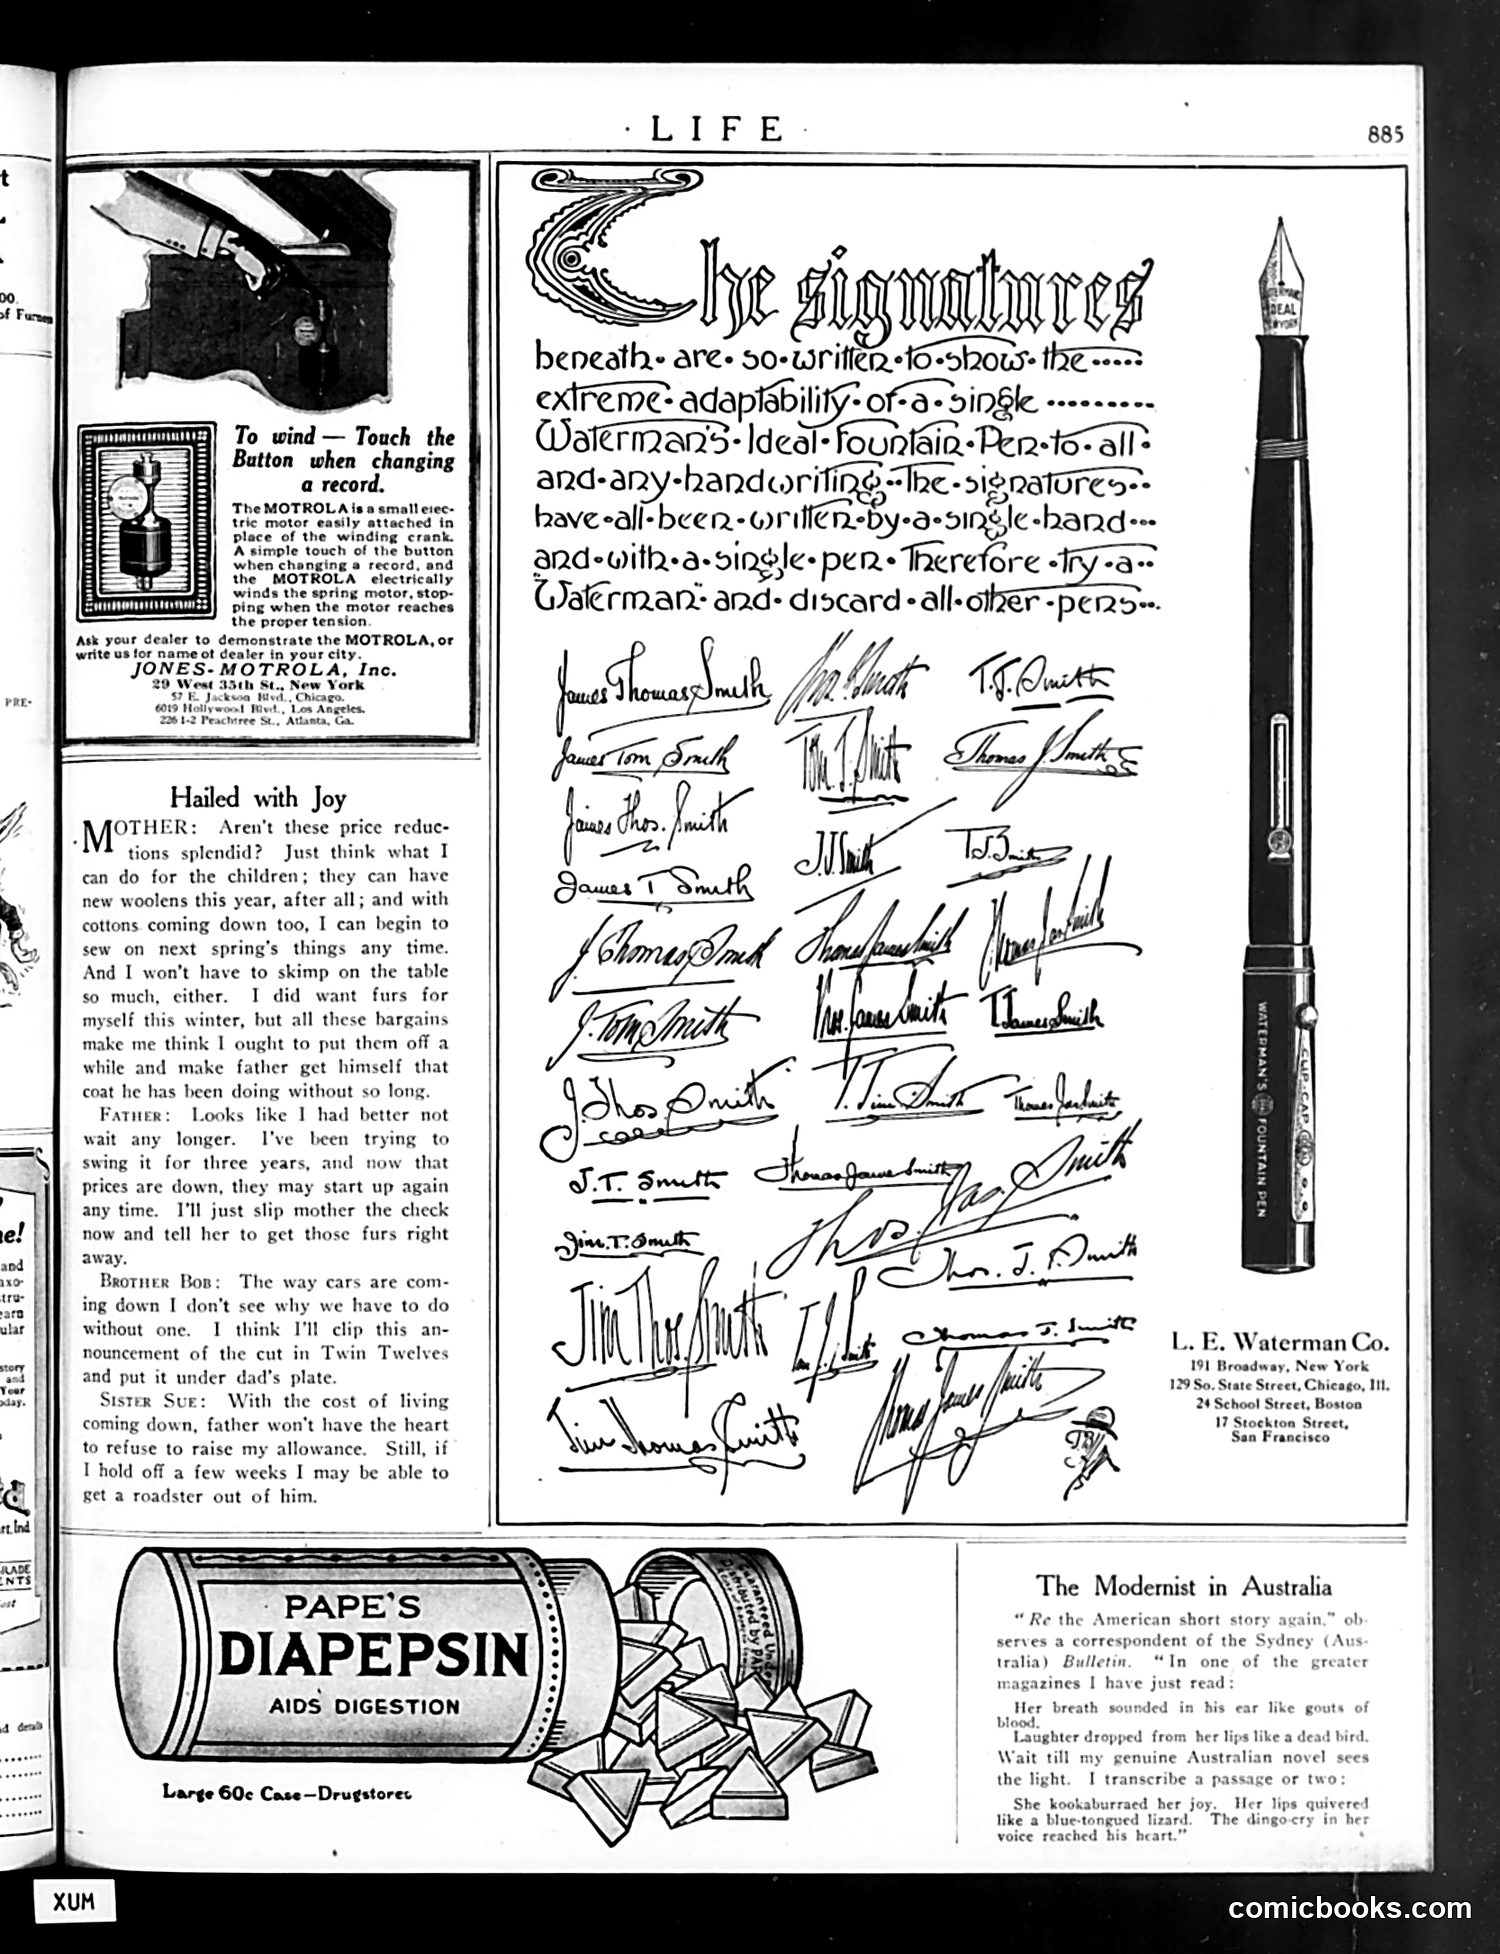 · LIFE ·
885
To wind — Touch the
Button when changing
a record.
The MOTROLA is a small elec-
tric motor easily attached in
place of the winding crank.
A simple touch of the button
when changing a record, and
the MOTROLA electrically
winds the spring motor, stop-
ping when the motor reaches
the proper tension.
Ask your dealer to demonstrate the MOTROLA, or
write us for name of dealer in your city.
JONES-MOTROLA, Inc.
29 West 35th St., New York
57 E. Jackson Blvd., Chicago.
6019 Hollywood Blvd., Los Angeles.
226 1-2 Peachtree St., Atlanta, Ga.
Hailed with Joy
MOTHER: Aren't these price reduc-
tions splendid? Just think what I
can do for the children; they can have
new woolens this year, after all; and with
cottons coming down too, I can begin to
sew on next spring's things any time.
And I won't have to skimp on the table
so much, either. I did want furs for
myself this winter, but all these bargains
make me think I ought to put them off a
while and make father get himself that
coat he has been doing without so long.
FATHER: Looks like I had better not
wait any longer. I've been trying to
swing it for three years, and now that
prices are down, they may start up again
any time. I'll just slip mother the check
now and tell her to get those furs right
away.
BROTHER BOB: The way cars are com-
ing down I don't see why we have to do
without one. I think I'll clip this an-
nouncement of the cut in Twin Twelves
and put it under dad's plate.
SISTER SUE: With the cost of living
coming down, father won't have the heart
to refuse to raise my allowance. Still, if
I hold off a few weeks I may be able to
get a roadster out of him.
The signatures
beneath · are · so · written · to · show · the ·····
extreme · adaptability · of · a · single ··········
Waterman's · Ideal · Fountain · Pen · to · all ·
and · any · handwriting ·· The · signatures ··
have · all · been · written · by · a · single · hand ···
and · with · a · single · pen · Therefore · try · a ··
"Waterman" · and · discard · all · other · pens ···
James Thomas Smith
Thos. J. Smith
T.J. Smith
James Tom Smith
Tom J. Smith
Thomas J. Smith
James Thos. Smith
T.J. Smith
T.J. Smith
James T Smith
J. Thomas Smith
Thomas James Smith
Thomas Jas Smith
J. Tom Smith
Thos. James Smith
T. James Smith
J. Thos. Smith
T. Jim Smith
Thomas Jas Smith
J.T. Smith
Thomas James Smith
Thos. Jas. Smith
Jim. T. Smith
Thos. J. Smith
Jim Thos. Smith
Tom J. Smith
Thomas J. Smith
Jim Thomas Smith
Thomas James Smith
WATERMAN'S
IDEAL
NEW YORK
WATERMAN'S FOUNTAIN PEN
CLIP-CAP
L. E. Waterman Co.
191 Broadway, New York
129 So. State Street, Chicago, Ill.
24 School Street, Boston
17 Stockton Street,
San Francisco
PAPE'S
DIAPEPSIN
AIDS DIGESTION
Large 60c Case—Drugstores
The Modernist in Australia
"Re the American short story again," ob-
serves a correspondent of the Sydney (Aus-
tralia) Bulletin. "In one of the greater
magazines I have just read:
Her breath sounded in his ear like gouts of
blood.
Laughter dropped from her lips like a dead bird.
Wait till my genuine Australian novel sees
the light. I transcribe a passage or two:
She kookaburraed her joy. Her lips quivered
like a blue-tongued lizard. The dingo-cry in her
voice reached his heart."
XUM
comicbooks.com